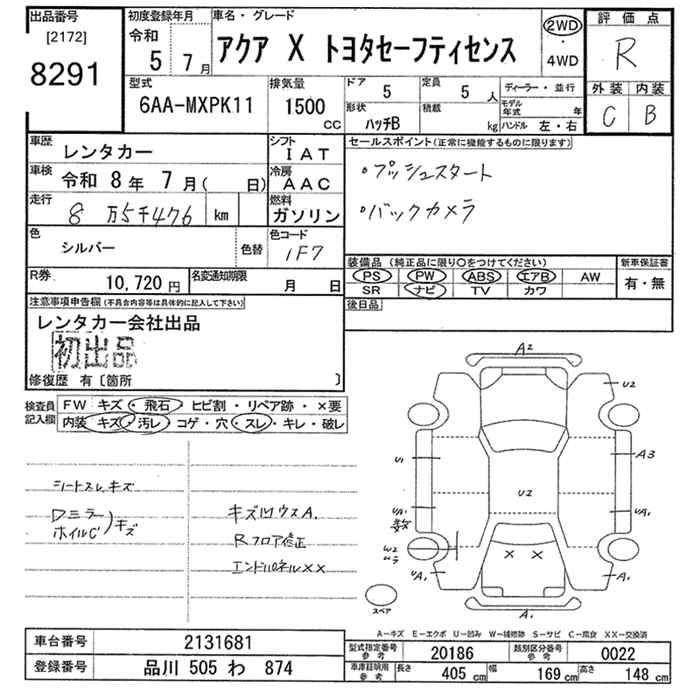 出品番号
[2172]
8291
初度登録年月
令和 5年 7月
車名・グレード
アクア X トヨタセーフティセンス
2WD
・
4WD
評価点
R
外装 内装
C B
型式
6AA-MXPK11
排気量
1500 CC
ドア 5
定員 5人
形状 ハッチB
積載 kg
ディーラー・並行
モデル年式 年
ハンドル 左・右
車歴
レンタカー
シフト
IAT
車検 令和 8年 7月( 日)
冷房
AAC
走行
8万5千476 km
燃料
ガソリン
色
シルバー
色替
色コード
1F7
R券
10,720円
名変通知期限
月 日
セールスポイント(正常に機能するものに限ります)
・プッシュスタート
・バックカメラ
装備品(純正品に限り○をつけてください)
新車保証書
PS PW ABS エアB AW
SR ナビ TV カワ
有・無
後日品
注意事項申告欄(不具合内容等は具体的に記入して下さい)
レンタカー会社出品
初出品
修復歴 有〔箇所 〕
検査員記入欄
FW キズ・飛石・ヒビ割・リペア跡・×要
内装 キズ・汚レ・コゲ・穴・スレ・キレ・破レ
シートスレ、キズ
Dミラー
ホイルC )キズ
キズ凹ウスA.
Rフロア修正
エンドパネル××
A2
U2
U1
A3
U2
UA1
UA1
W2
× ×
UA1
A1
A1
スペア
A−キズ E−エクボ U−凹み W−補修跡 S−サビ C−腐食 XX−交換済
車台番号
2131681
登録番号
品川 505 わ 874
型式指定番号 参考
20186
類別区分番号 参考
0022
車庫証明用 参考
長さ 405 cm
幅 169 cm
高さ 148 cm